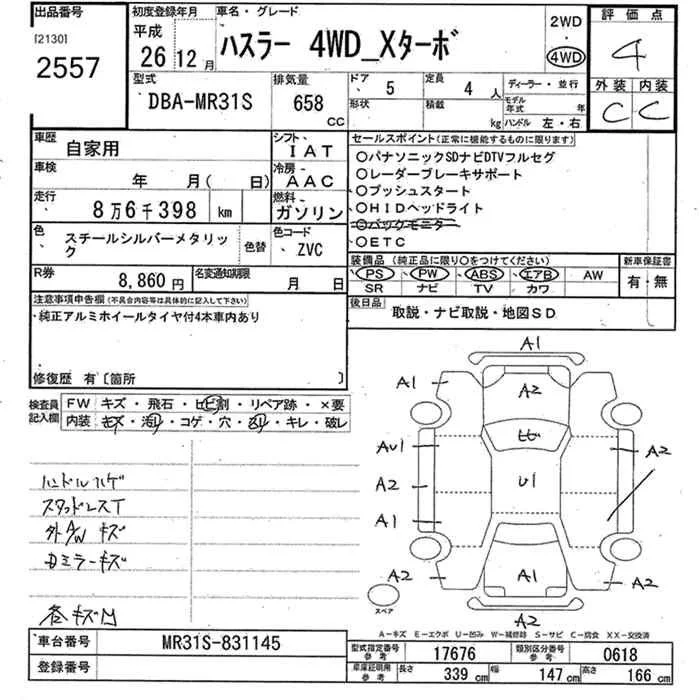 出品番号
[2130]
2557
初度登録年月
平成
26 12月
車名・グレード
ハスラー 4WD_Xターボ
2WD
・
4WD
評価点
4
外装 内装
C C
型式
DBA-MR31S
排気量
658
cc
ドア
5
定員
4 人
形状
積載
kg
ディーラー・並行
モデル年式 年
ハンドル 左・右
車歴
自家用
シフト
IAT
車検
年 月( 日)
冷房
AAC
走行
8万6千398 km
燃料
ガソリン
色
スチールシルバーメタリック
色替
色コード
ZVC
R券
8,860円
名変通知期限
月 日
セールスポイント(正常に機能するものに限ります)
○パナソニックSDナビDTVフルセグ
○レーダーブレーキサポート
○プッシュスタート
○HIDヘッドライト
○バックモニター
○ETC
装備品(純正品に限り○をつけてください)
PS PW ABS エアB AW
SR ナビ TV カワ
新車保証書
有・無
後日品
取説・ナビ取説・地図SD
注意事項申告欄(不具合内容等は具体的に記入して下さい)
・純正アルミホイールタイヤ付4本車内あり
修復歴 有〔箇所 〕
検査員記入欄
FW キズ・飛石・ヒビ割・リペア跡・×要
内装 キズ・汚れ・コゲ・穴・スリ・キレ・破レ
ハンドルハゲ
スタッドレスT
外A/W キズ
ミラーキズ
各キズ凹
A1
A1 A2 A2
AU1 A2
A2 U1
A1
A2 A1 A2
A2
スペア
A−キズ E−エクボ U−凹み W−補修跡 S−サビ C−腐食 XX−交換済
車台番号
MR31S-831145
登録番号
型式指定番号
参考
17676
類別区分番号
参考
0618
車庫証明用
参考
長さ 339 cm
幅 147 cm
高さ 166 cm